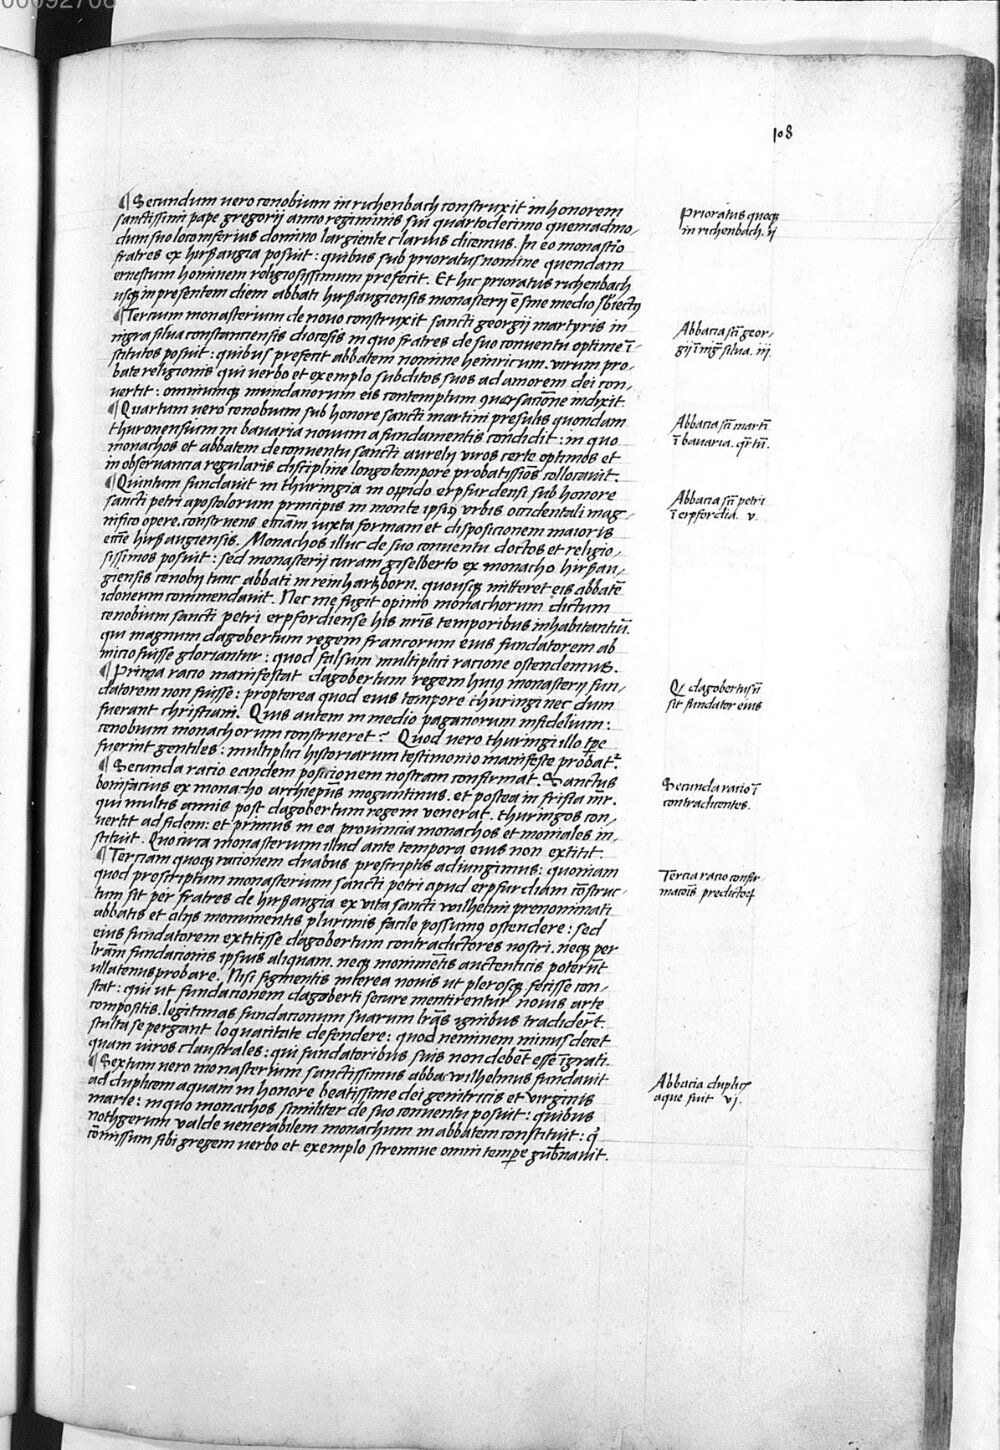 108
¶ Secundum uero cenobium in richenbach construxit in honorem
sanctissimi pape gregorij anno regiminis sui quartodecimo quemadmo-
dum suo loco inferius domino largiente clarius dicemus. In eo monastio
fratres ex hirßaugia posuit: quibus sub prioratus nomine quendam
ernestum hominem religiosissimum prefecit. Et hic prioratus richenbach
usq in presentem diem abbati hirßaugiensis monasterij ē sine medio sbiectꝰ
Prioratus quoqꝫ
in richenbach. ij
¶ Tercium monasterium de nouo construxit sancti georgij martyris in
nigra silua constanciensis diocesis in quo fratres de suo conuentu optime ī-
stitutos posuit: quibus prefecit abbatem nomine heinricum. virum pro-
bate religionis qui uerbo et exemplo subditos suos ad amorem dei con-
uertit: omniumqꝫ mundanorum eis contemptum ꝯuersacione indixit.
Abbacia sti geor-
gij ī nig silua. iij.
¶ Quartum uero cenobium sub honore sancti martini presulis quondam
thuronensium in bauaria nouum a fundamentis condidit: in quo
monachos et abbatem de conuentu sancti aurelij uiros certe optimos et
in obseruancia regularis discipline longo tempore probatissiōs collocauit.
Abbacia sti marti
ī bauaria. qrtū.
¶ Quintum fundauit in thuringia in oppido erpfurdensi sub honore
sancti petri apostolorum principis in monte ipsiꝰ vrbis occidentali mag-
nifico opere. construens etiam iuxta formam et disposicionem maioris
eccīe hirßaugiensis. Monachos illuc de suo conuentu doctos et religio-
sissimos posuit: sed monasterij curam giselberto ex monacho hirßau-
giensis cenobij tunc abbati in reinhartzborn. quousqꝫ mitteret eis abbatē
idoneum commendauit. Nec me fugit opinio monachorum dictum
cenobium sancti petri erpfordiense his nrīs temporibus inhabitantiū.
qui magnum dagobertum regem francorum eius fundatorem ab
inicio fuisse gloriantur: quod falsum multiplici racione ostendemus.
Abbacia sti petri
ī erpfordia. v.
¶ Prima racio manifestat dagobertum regem huiꝰ monasterij fun-
datorem non fuisse: propterea quod eius tempore thuringi nec dum
fuerant christiani. Quis autem in medio paganorum infidelium:
cenobium monachorum construeret? Quod uero thuringi illo tpe
fuerint gentiles: multiplici historiarum testimonio manifeste probat
Q dagobertus nō
sit fundator eius
¶ Secunda racio eandem posicionem nostram confirmat. Sanctus
bonifacius ex monacho archiepūs moguntinus. et postea in frisia mr.
qui multis annis post dagobertum regem venerat. thuringos con-
uertit ad fidem: et primus in ea prouincia monachos et moniales in-
stituit. Quo circa monasterium illud ante tempora eius non extitit.
Secunda racio ī
contradicentes.
¶ Terciam quoqꝫ racionem duabus prescriptis adiungimus: quoniam
quod prescriptum monasterium sancti petri apud erpfurdiam cōstruc-
tum sit per fratres de hirßaugia ex vita sancti wilhelmi prenominati
abbatis et alijs monumentis plurimis facile possumꝰ ostendere: sed
eius fundatorem extitisse dagobertum contradictores nostri. neqꝫ per
lrām fundacionis ipsius aliquam. neqꝫ monimētis auctenticis poterūt
ullatenus probare. Nisi figmentis interea nouis ut plerosqꝫ fecisse con-
stat: qui ut fundacionem dagoberti secure mentirentur nouis arte
compositis. legitimas fundacionum suarum lrās ignibus tradiderūt.
stulta se pergant loquacitate defendere: quod neminem minus decet
quam uiros claustrales: qui fundatoribus suis non debēt esse īgrati.
Tercia racio confir-
macōis predictoꝝ
¶ Sextum uero monasterium sanctissimus abba wilhelmus fundauit
ad duplicem aquam in honore beatissime dei genitricis et virginis
marie: in quo monachos similiter de suo conuentu posuit: quibus
nothgerum valde uenerabilem monachum in abbatem constituit: q
cōmissum sibi gregem uerbo et exemplo strennue omni tempe gubnauit.
Abbacia duplicꝭ
aque fuit vj.